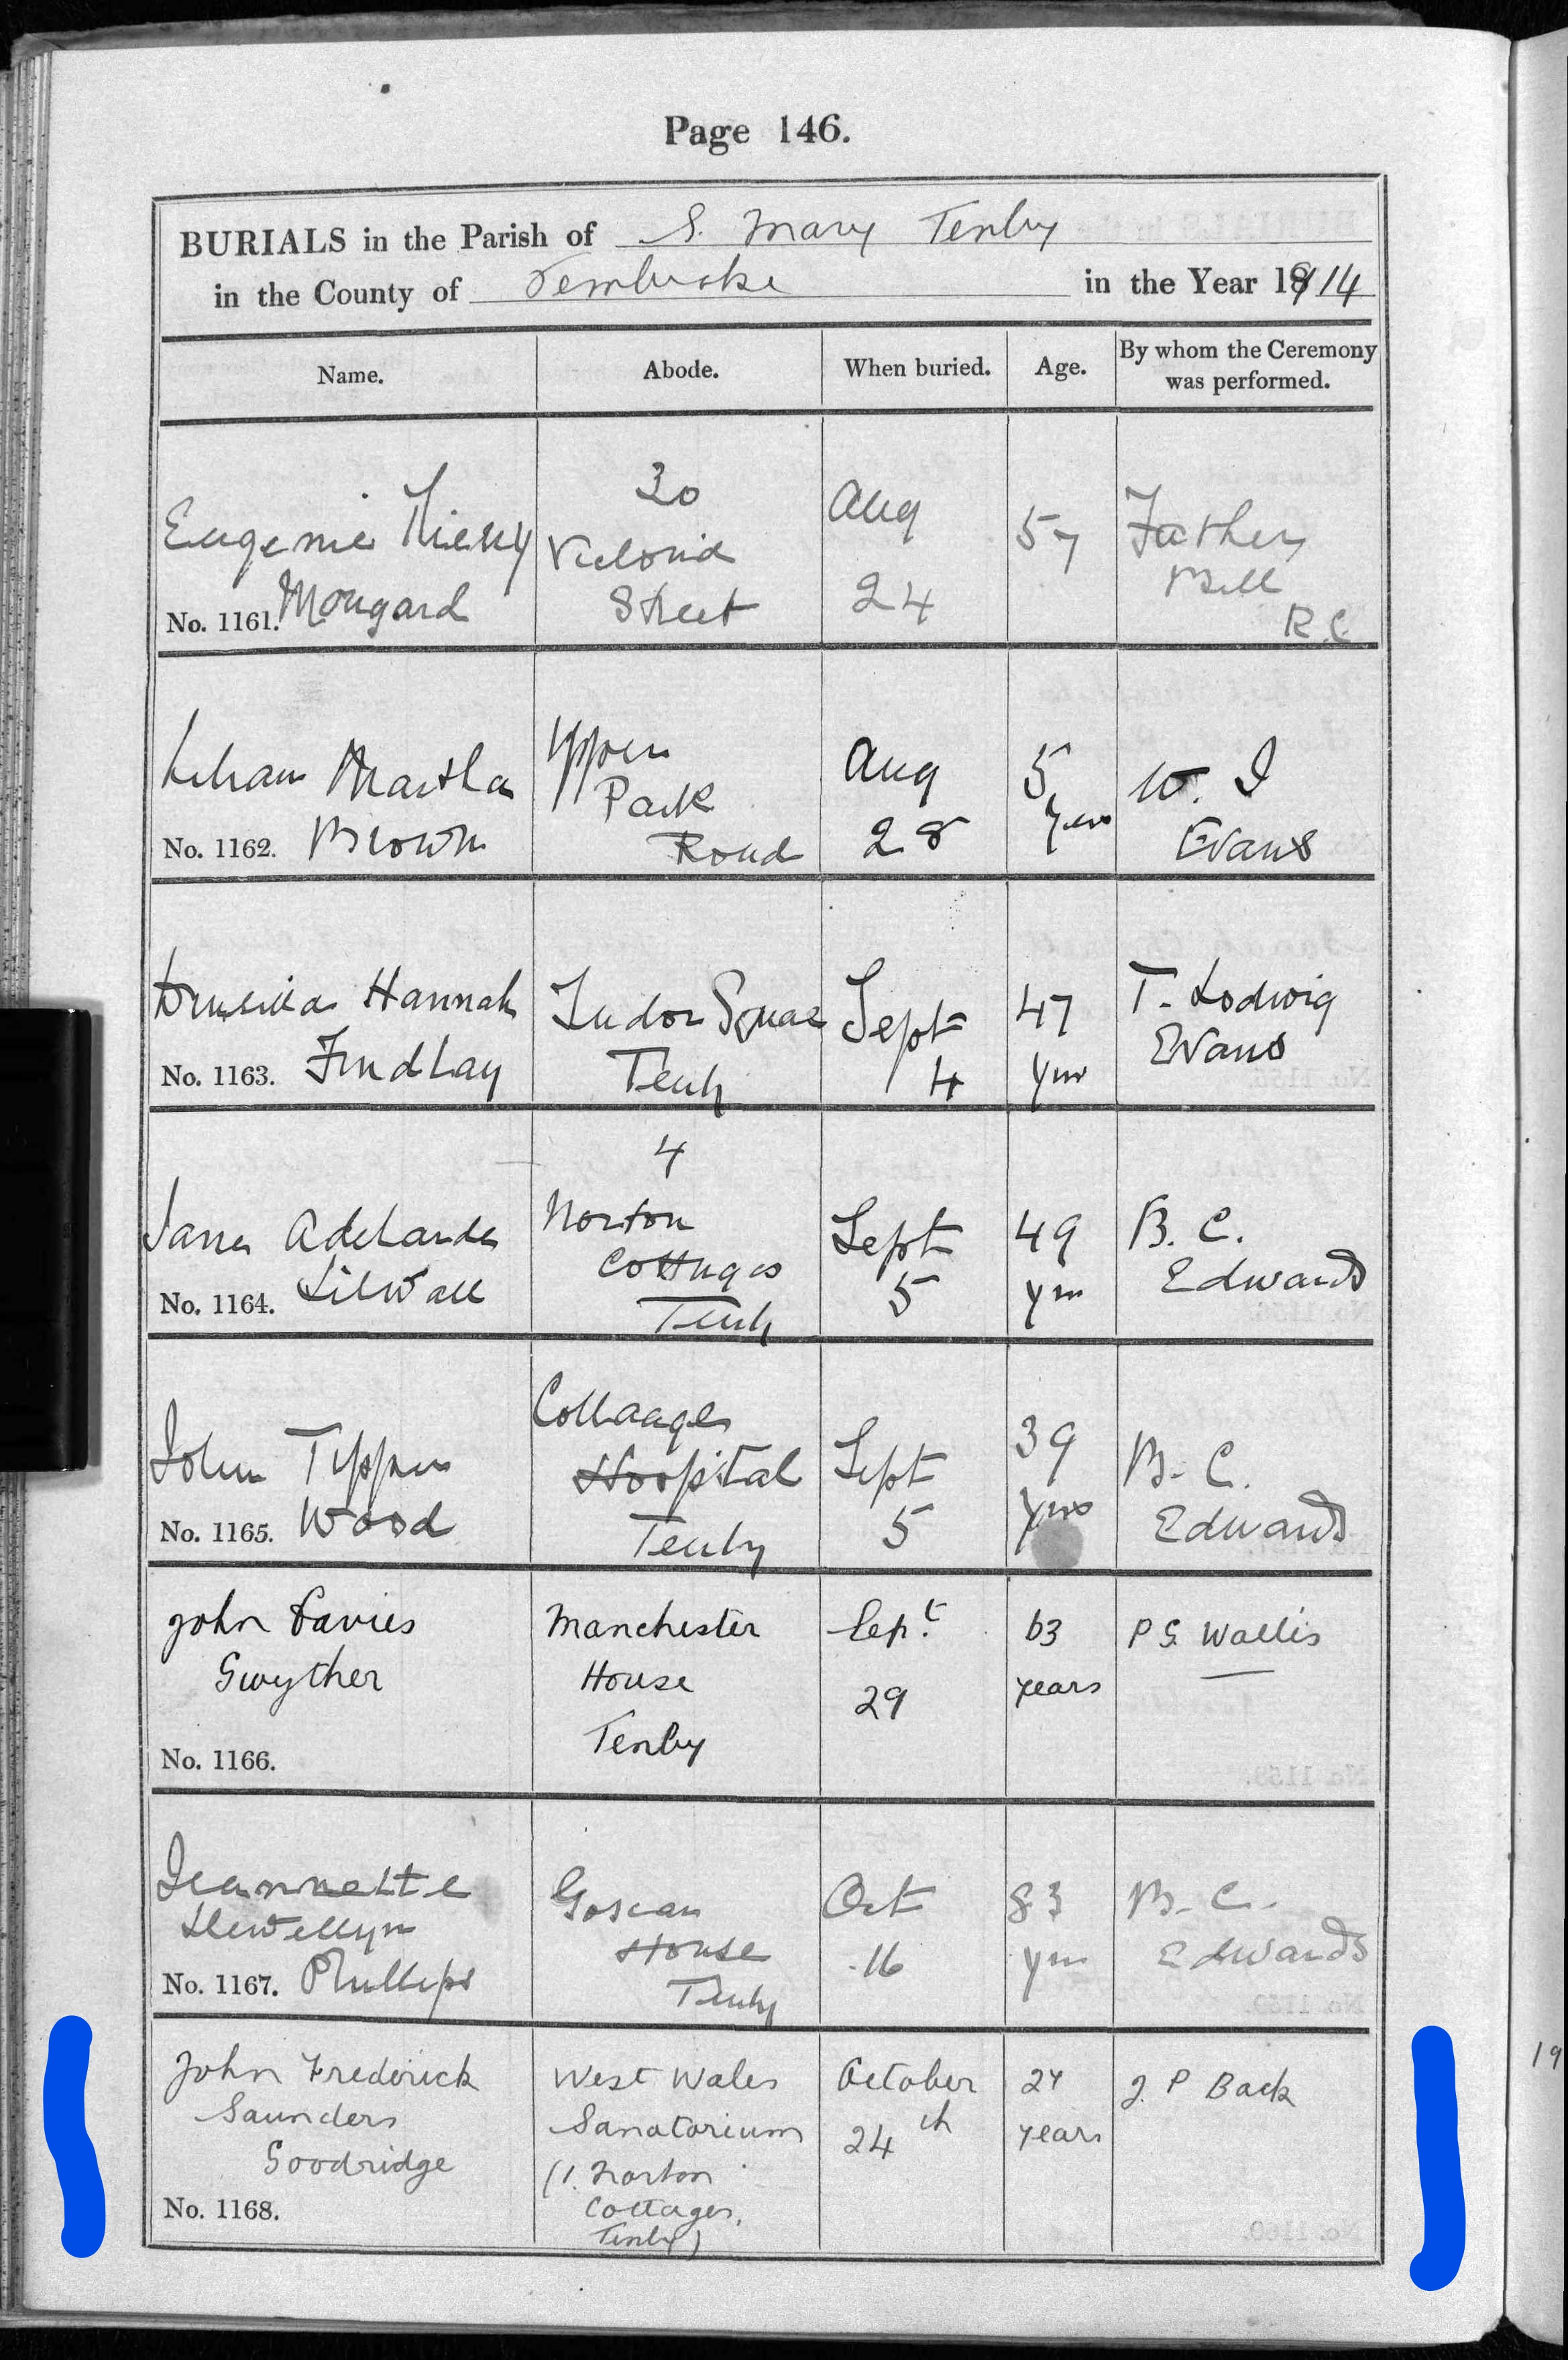 Page 146.
BURIALS in the Parish of S. Mary Tenby
in the County of Pembroke in the Year 1914
Name. Abode. When buried. Age. By whom the Ceremony was performed.
Eugenie Thierry Mougard
No. 1161.
30
Victoria
Street
Aug
24
57
Father
Bill
R.C.
Lilian Martha
No. 1162. Brown
Upper
Park
Road
Aug
28
5
yrs
W. I
Evans
Drusilla Hannah
No. 1163. Findlay
Tudor Square
Tenby
Sept
4
47
yrs
T. Lodwig
Evans
Jane Adelaide
No. 1164. Lilwall
4
Norton
Cottages
Tenby
Sept
5
49
yrs
B. C.
Edwards
John Tipper
No. 1165. Wood
Cottage
Hospital
Tenby
Sept
5
39
yrs
B. C.
Edwards
John Davies
Gwyther
No. 1166.
Manchester
House
Tenby
Sept.
29
63
years
P S. Wallis
Jeannette
Llewellyn
No. 1167. Phillips
Goscar
House
Tenby
Oct
16
83
yrs
B. C.
Edwards
John Frederick
Saunders
Goodridge
No. 1168.
West Wales
Sanatorium
(1. Norton
Cottages,
Tenby)
October
24th
years
J. P Back
19